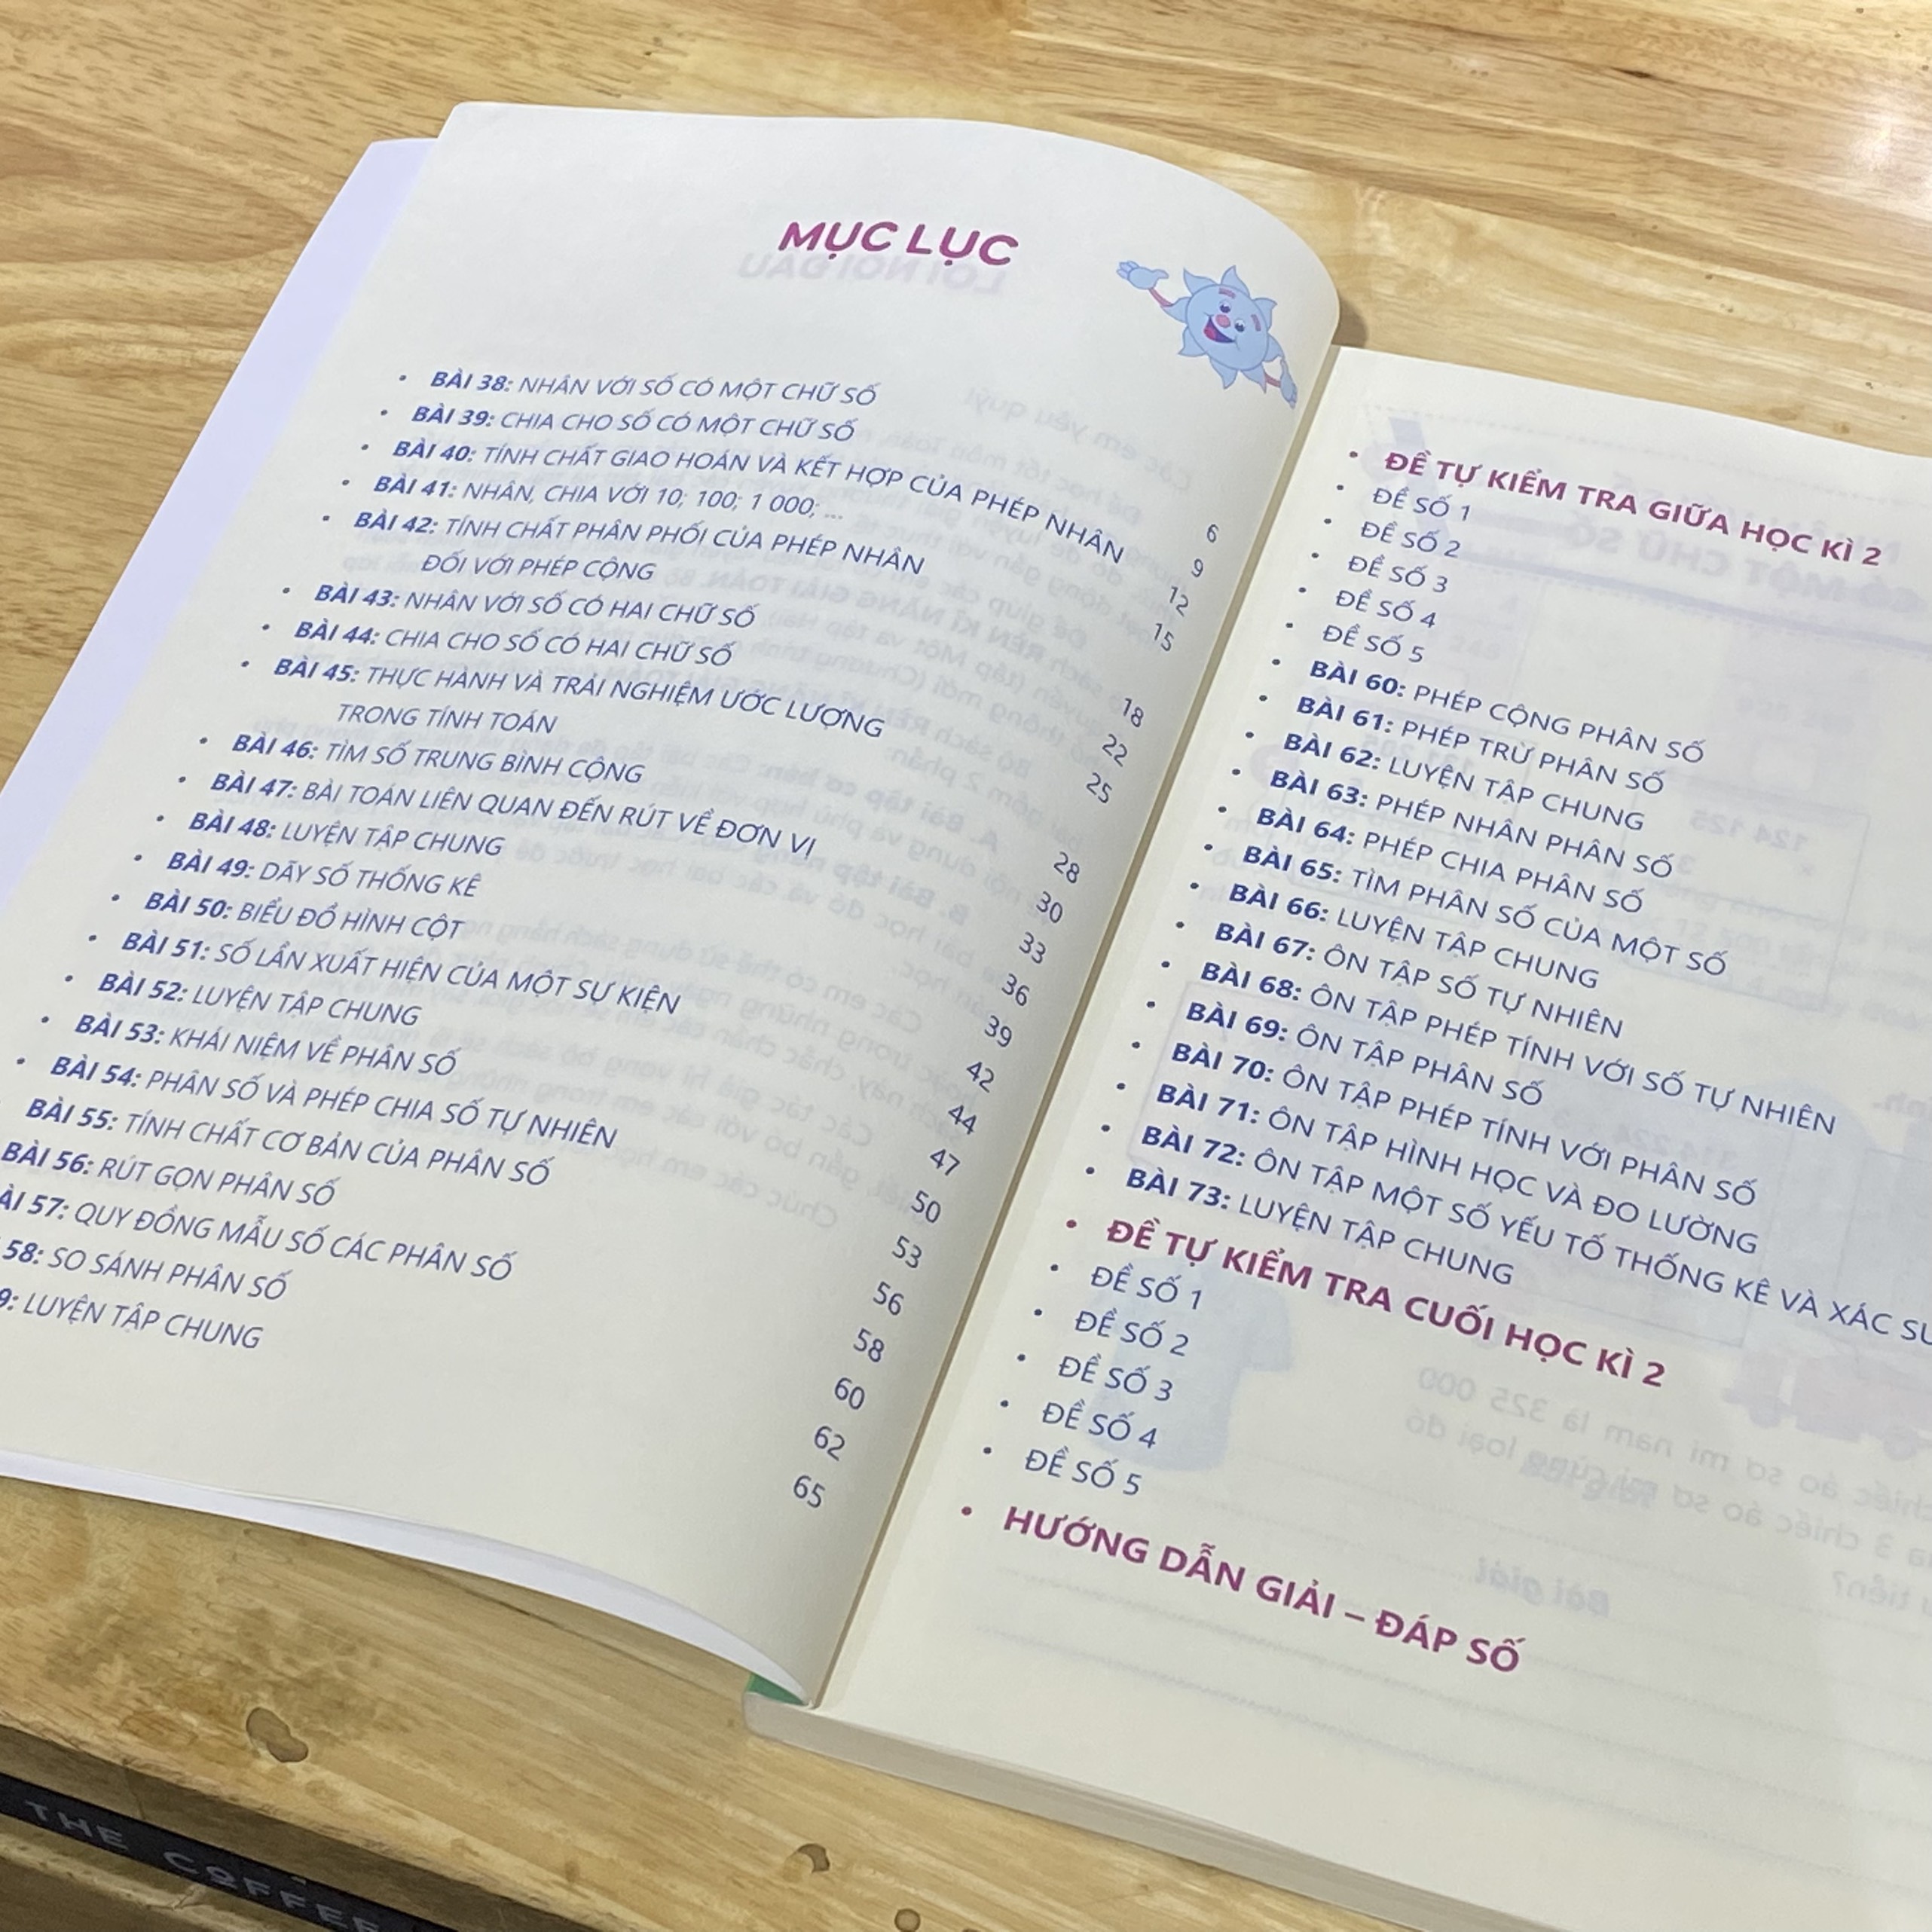 MỤC LỤC
• BÀI 38: NHÂN VỚI SỐ CÓ MỘT CHỮ SỐ 6
• BÀI 39: CHIA CHO SỐ CÓ MỘT CHỮ SỐ 9
• BÀI 40: TÍNH CHẤT GIAO HOÁN VÀ KẾT HỢP CỦA PHÉP NHÂN 12
• BÀI 41: NHÂN, CHIA VỚI 10; 100; 1 000; ... 15
• BÀI 42: TÍNH CHẤT PHÂN PHỐI CỦA PHÉP NHÂN
ĐỐI VỚI PHÉP CỘNG 18
• BÀI 43: NHÂN VỚI SỐ CÓ HAI CHỮ SỐ 22
• BÀI 44: CHIA CHO SỐ CÓ HAI CHỮ SỐ 25
• BÀI 45: THỰC HÀNH VÀ TRẢI NGHIỆM ƯỚC LƯỢNG
TRONG TÍNH TOÁN 28
• BÀI 46: TÌM SỐ TRUNG BÌNH CỘNG 30
• BÀI 47: BÀI TOÁN LIÊN QUAN ĐẾN RÚT VỀ ĐƠN VỊ 33
• BÀI 48: LUYỆN TẬP CHUNG 36
• BÀI 49: DÃY SỐ THỐNG KÊ 39
• BÀI 50: BIỂU ĐỒ HÌNH CỘT 42
• BÀI 51: SỐ LẦN XUẤT HIỆN CỦA MỘT SỰ KIỆN 44
• BÀI 52: LUYỆN TẬP CHUNG 47
• BÀI 53: KHÁI NIỆM VỀ PHÂN SỐ 50
• BÀI 54: PHÂN SỐ VÀ PHÉP CHIA SỐ TỰ NHIÊN 53
BÀI 55: TÍNH CHẤT CƠ BẢN CỦA PHÂN SỐ 56
BÀI 56: RÚT GỌN PHÂN SỐ 58
ÀI 57: QUY ĐỒNG MẪU SỐ CÁC PHÂN SỐ 60
58: SO SÁNH PHÂN SỐ 62
9: LUYỆN TẬP CHUNG 65
• ĐỀ TỰ KIỂM TRA GIỮA HỌC KÌ 2
• ĐỀ SỐ 1
• ĐỀ SỐ 2
• ĐỀ SỐ 3
• ĐỀ SỐ 4
• ĐỀ SỐ 5
• BÀI 60: PHÉP CỘNG PHÂN SỐ
• BÀI 61: PHÉP TRỪ PHÂN SỐ
• BÀI 62: LUYỆN TẬP CHUNG
• BÀI 63: PHÉP NHÂN PHÂN SỐ
• BÀI 64: PHÉP CHIA PHÂN SỐ
• BÀI 65: TÌM PHÂN SỐ CỦA MỘT SỐ
• BÀI 66: LUYỆN TẬP CHUNG
• BÀI 67: ÔN TẬP SỐ TỰ NHIÊN
• BÀI 68: ÔN TẬP PHÉP TÍNH VỚI SỐ TỰ NHIÊN
• BÀI 69: ÔN TẬP PHÂN SỐ
• BÀI 70: ÔN TẬP PHÉP TÍNH VỚI PHÂN SỐ
• BÀI 71: ÔN TẬP HÌNH HỌC VÀ ĐO LƯỜNG
• BÀI 72: ÔN TẬP MỘT SỐ YẾU TỐ THỐNG KÊ VÀ XÁC SU
• BÀI 73: LUYỆN TẬP CHUNG
• ĐỀ TỰ KIỂM TRA CUỐI HỌC KÌ 2
• ĐỀ SỐ 1
• ĐỀ SỐ 2
• ĐỀ SỐ 3
• ĐỀ SỐ 4
• ĐỀ SỐ 5
• HƯỚNG DẪN GIẢI – ĐÁP SỐ
THE COFFEE